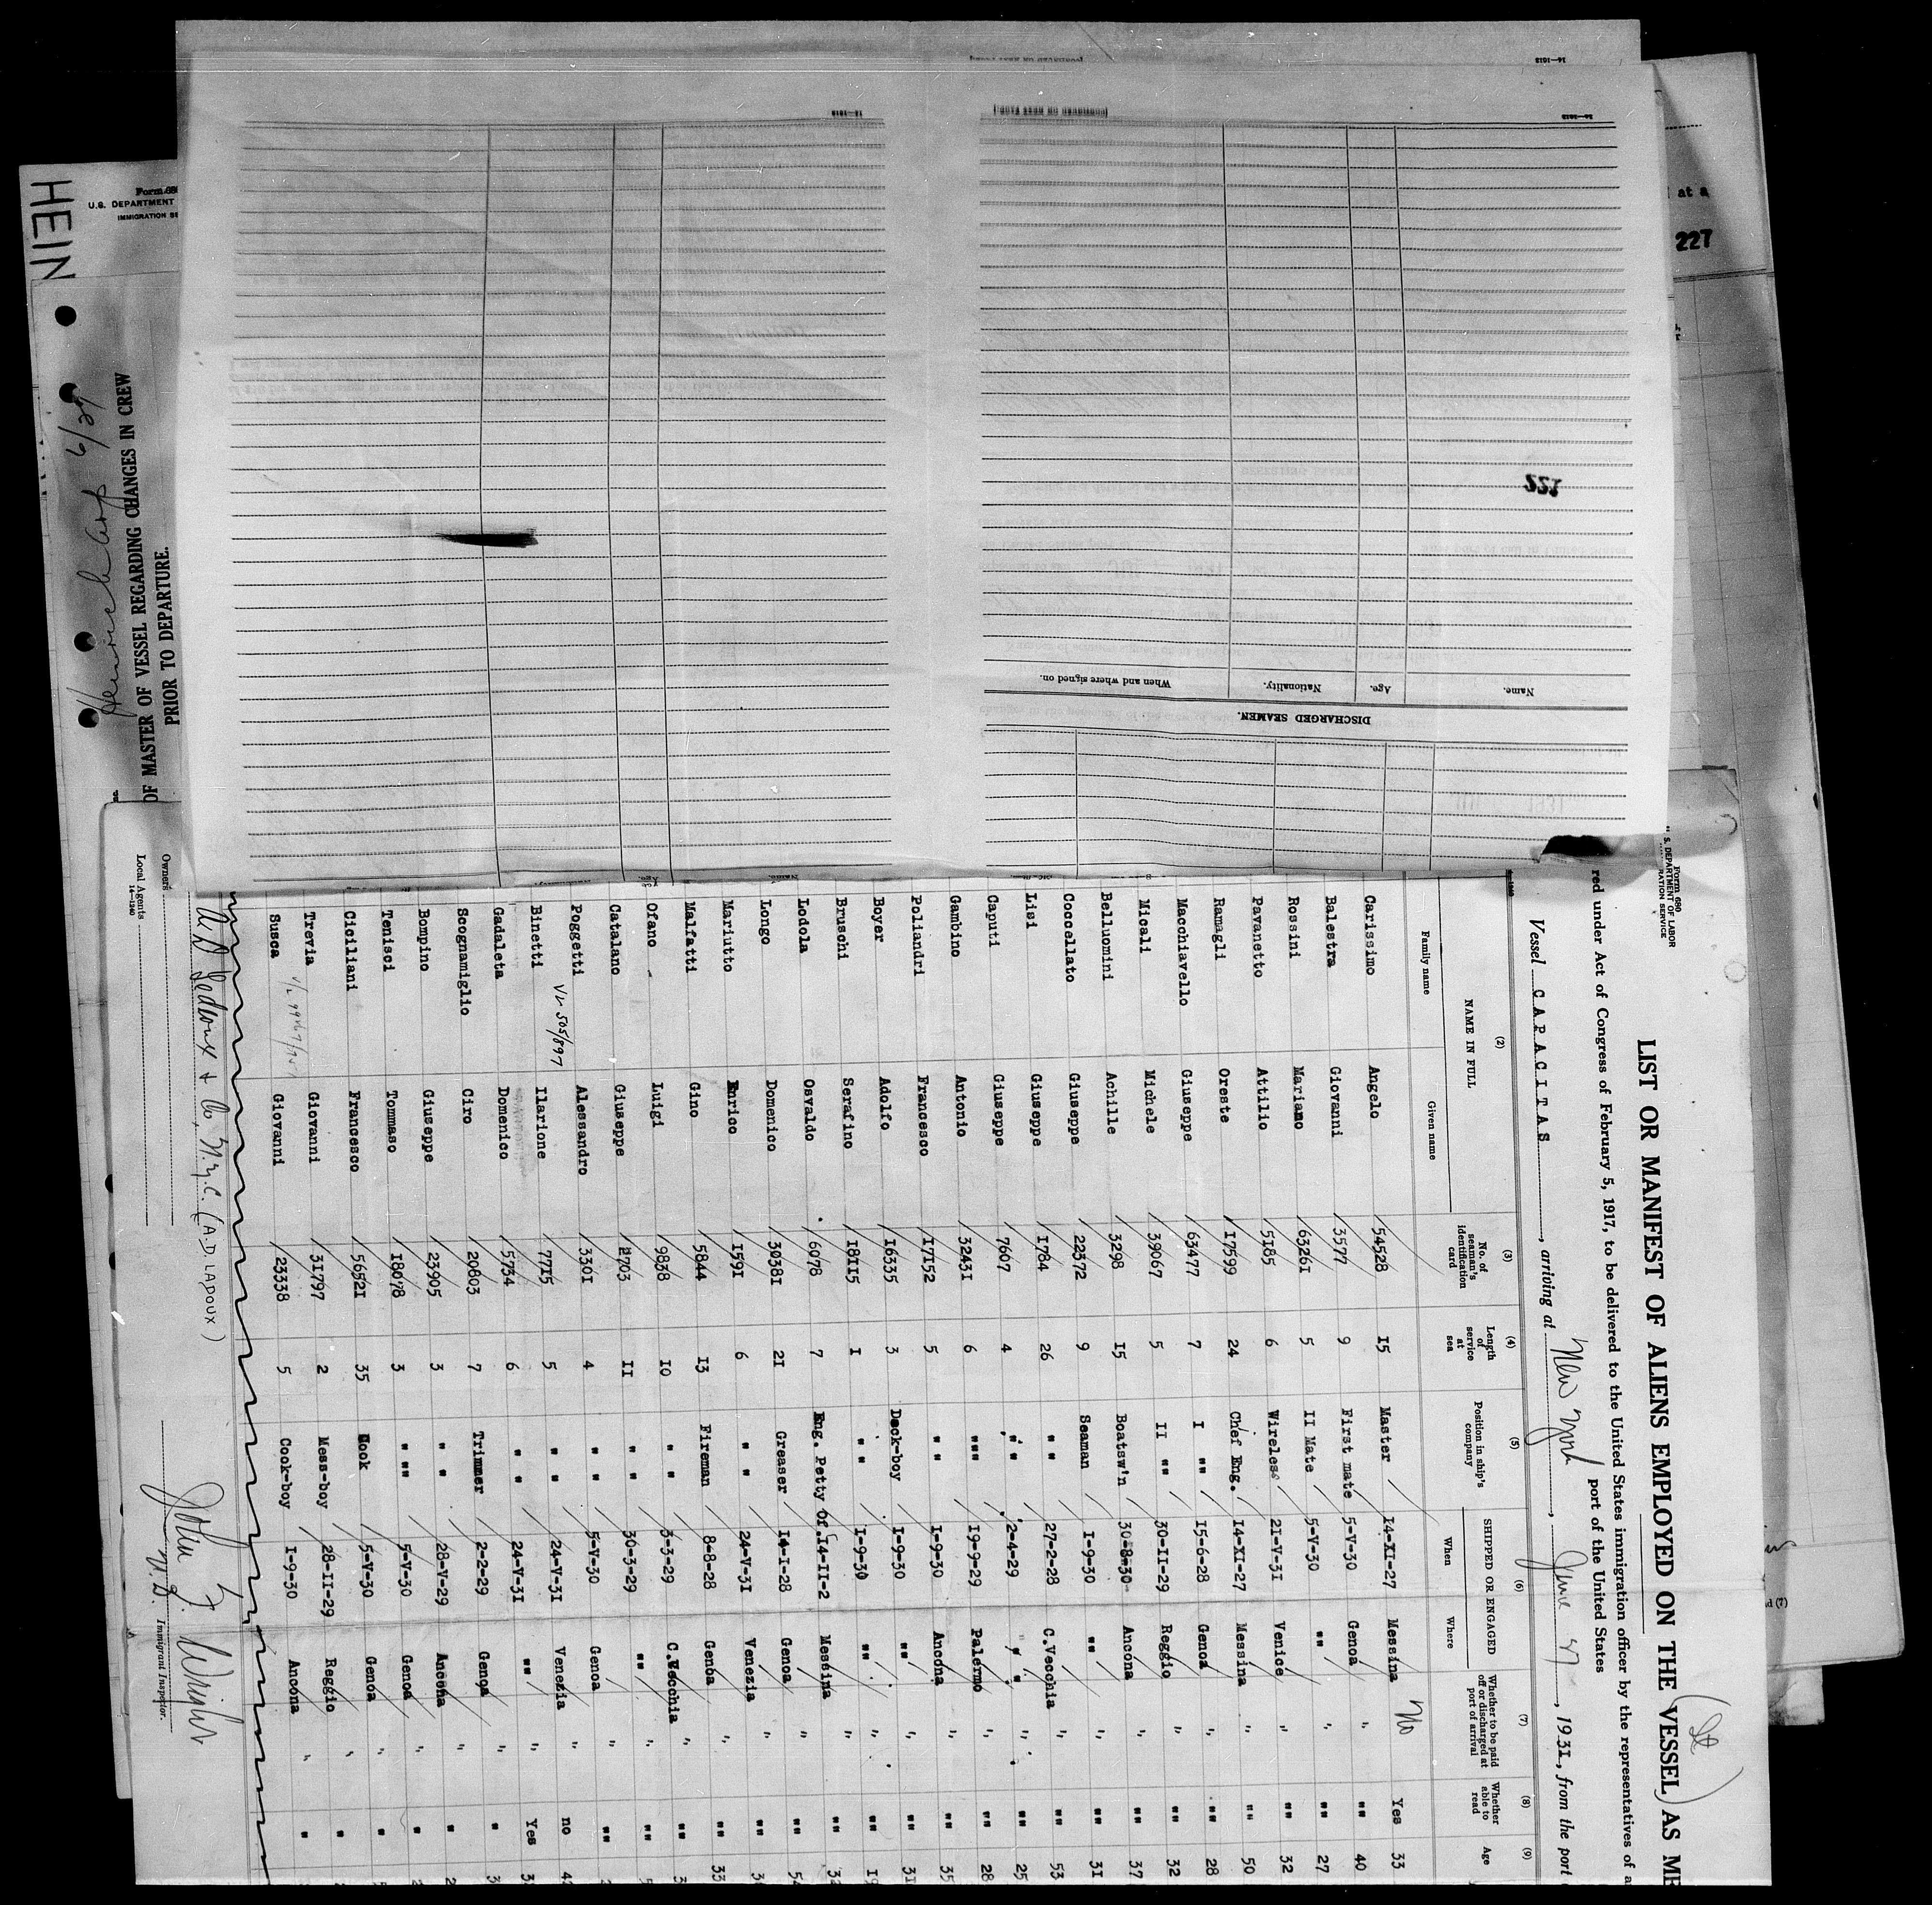 LIST OR MANIFEST OF ALIENS EMPLOYED ON THE VESSEL AS ME
red under Act of Congress of February 5, 1917, to be delivered to the United States immigration officer by the representatives of a
port of the United States
Vessel CAPACITAS, arriving at New York, June 27, 1931, from the port
Form 680
S. DEPARTMENT OF LABOR
RATION SERVICE
(2) (3) (4) (5) (6) (7) (8) (9)
NAME IN FULL No. of seaman's identification card Length of service at sea Position in ship's company SHIPPED OR ENGAGED Whether to be paid off or discharged at port of arrival Whether able to read Age
Family name Given name When Where
Carissimo Angelo 54528 15 Master 14-XI-27 Messina No Yes 33
Balestra Giovanni 3577 9 First mate 5-V-30 Genoa " "" 40
Rossini Mariamo 63261 5 II Mate 5-V-30 "" " "" 27
Pavanetto Attilio 5185 6 Wireless 21-V-31 Venice " "" 32
Ramagli Oreste 17599 24 Chef Eng. 14-XI-27 Messina " "" 50
Macchiavello Giuseppe 63477 7 I "" 15-6-28 Genoa " "" 28
Micali Michele 39067 5 II "" 30-II-29 Reggio " "" 32
Belluomini Achille 3298 15 Boatsw'n 30-8-30 Ancona " "" 37
Coccellato Giuseppe 22372 9 Seaman 1-9-30 "" " "" 31
Lisi Giuseppe 1784 26 " " 27-2-28 C.Vecchia " "" 53
Caputi Giuseppe 7607 4 " " 2-4-29 " " " "" 25
Gambino Antonio 32431 6 """ 19-9-29 Palermo " "" 28
Poliandri Francesco 17152 5 " " 1-9-30 Ancona " "" 35
Boyer Adolfo 16335 3 Deck-boy 1-9-30 "" " "" 31
Bruschi Serafino 18115 1 " " 1-9-30 "" " "" 19
Lodola Osvaldo 6078 7 Eng. Petty Of. 14-II-2 Messina " "" 32
Longo Domenico 30381 21 Greaser 14-I-28 Genoa " "" 54
Mariutto Enrico 1591 6 " " 24-V-31 Venezia " "" 3
Malfatti Gino 5844 13 Fireman 8-8-28 Genoa " "" 33
Ofano Luigi 9838 10 " " 3-3-29 C.Vecchia " "" 3
Catalano Giuseppe 2703 11 " " 30-3-29 "" " ""
Poggetti Alessandro 3301 4 " " 5-V-30 Genoa " ""
VL 505/897
Binetti Ilarione 7715 5 " " 24-V-31 Venezia " no 4
Gadaleta Domenico 5734 6 " " 24-V-31 "" " Yes 3
Scognamiglio Ciro 20803 7 Trimmer 2-2-29 Genoa " " 3
Bompino Giuseppe 23905 3 " " 28-V-29 Ancona " " 2
Tenisci Tommaso 18078 3 " "" 5-V-30 Genoa " " 2
Ciciliani Francesco 56521 35 Cook 5-V-30 Genoa " "
Trevia Giovanni 31797 2 Mess-boy 28-II-29 Reggio " "
Susca Giovanni 23338 5 Cook-boy 1-9-30 Ancona " "
& Co, N.Y.C. (A.D. LADOUX)
Owners
Local Agents
14-1240
John J. Wright
Immigrant Inspector.
DISCHARGED SEAMEN.
Name. Age. Nationality. When and where signed on.
221
HEIN
Form 680
U.S. DEPARTMENT
IMMIGRATION SE
Heinrich Arp 6/27
OF MASTER OF VESSEL REGARDING CHANGES IN CREW
PRIOR TO DEPARTURE.
at a
227